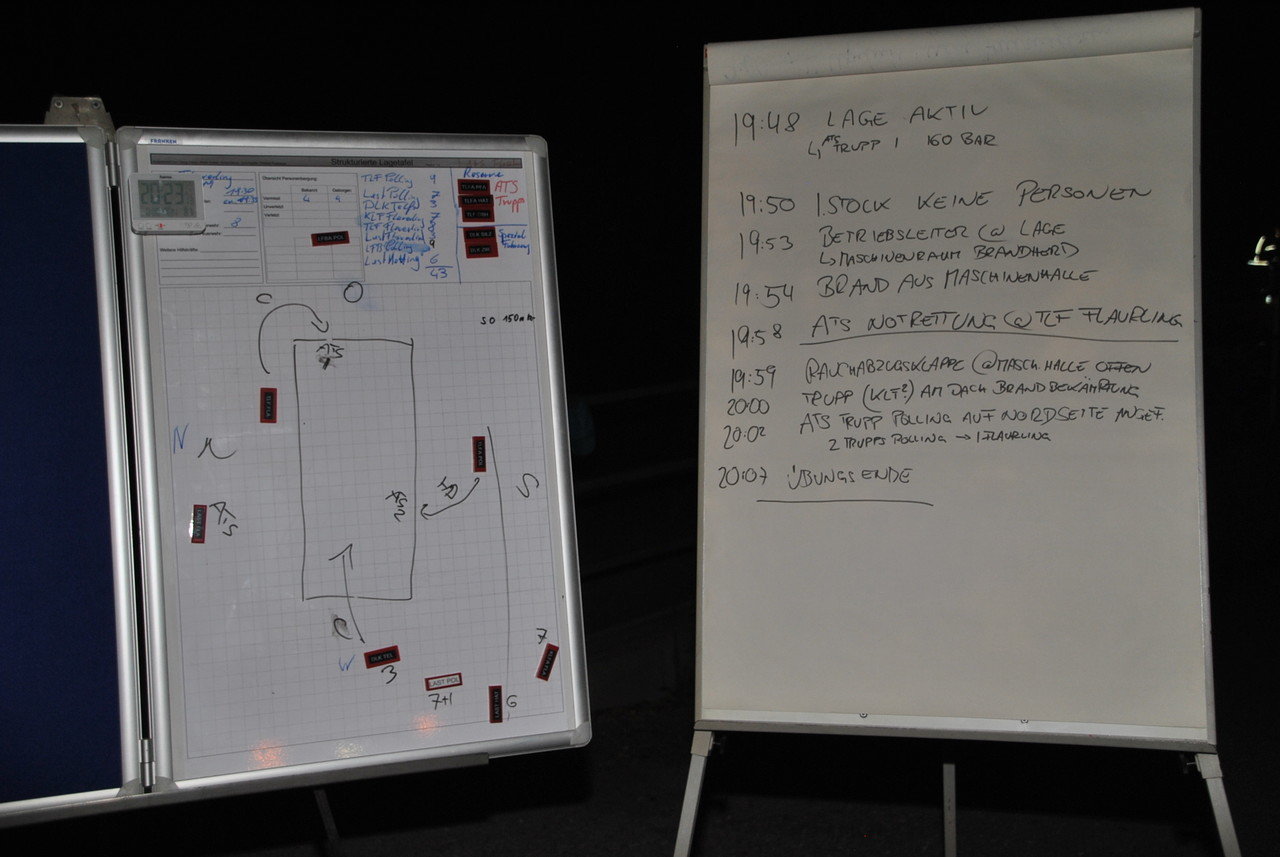 FRANKEN
Strukturierte Lagetafel
20:23
Übersicht Personenbergung
Bekannt
Geborgen
Vermisst 4 4
Verletzt
Weitere Hilfskräfte
8
LFBA POL
TLF Polling 9
Last Polling 7
DLK Telfs 3
KLF Flaurling
TLF Flaurling
Last Flaurling
LFB Polling 9
Last Hatting 6
43
Reserve
ATS
Trupps
Spezial
O
C
SO
ATS
TLF FLA
N
S
ATS
C
W
DLK TEL
3
LAST POL
7+1
LAST HAT
6
7
19:48 LAGE AKTIV
ATS TRUPP 1 160 BAR
19:50 1.STOCK KEINE PERSONEN
19:53 BETRIEBSLEITER @ LAGE
MASCHINENRAUM BRANDHERD
19:54 BRAND AUS MASCHINENHALLE
19:58 ATS NOTRETTUNG @ TLF FLAURLING
19:59 RAUCHABZUGSKLAPPE @ MASCH.HALLE OFFEN
20:00 TRUPP (KLT?) AM DACH BRANDBEKÄMPFUNG
20:02 ATS TRUPP POLLING AUF NORDSEITE ANGEF.
2 TRUPPS POLLING → 1 FLAURLING
20:07 ÜBUNGSENDE